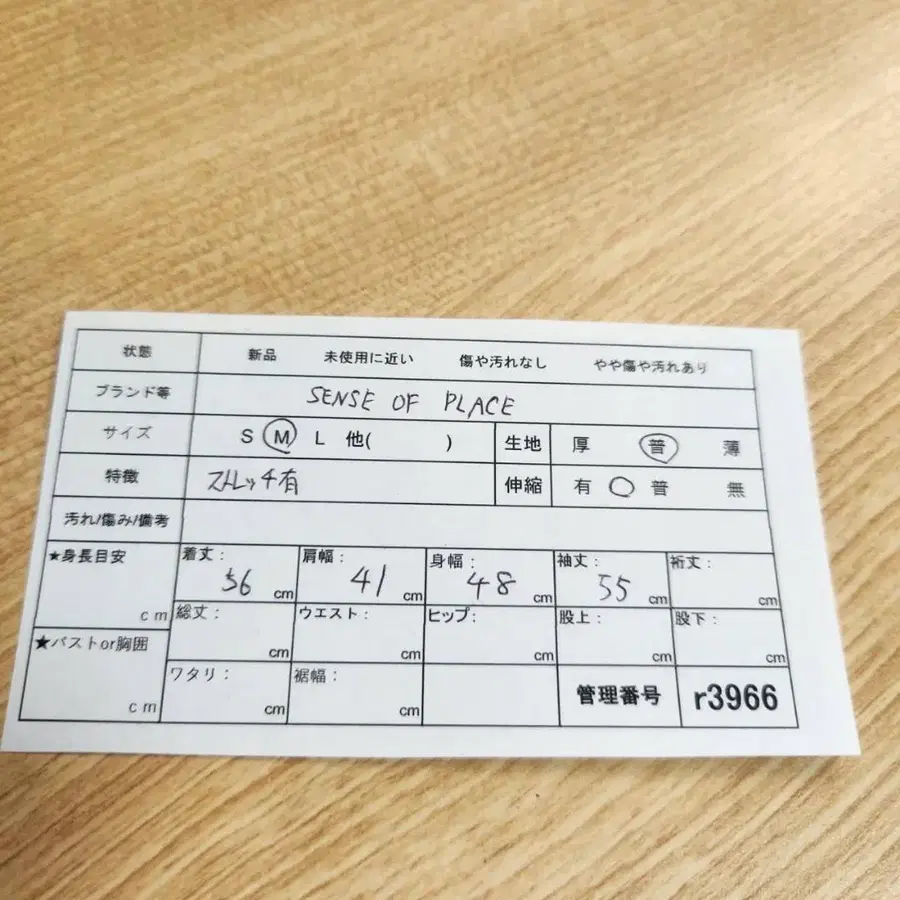 状態 新品 未使用に近い 傷や汚れなし やや傷や汚れあり
ブランド等 SENSE OF PLACE
サイズ S M L 他( ) 生地 厚 普 薄
特徴 ストレッチ有 伸縮 有 普 無
汚れ/傷み/備考
★身長目安 cm 着丈: 56 cm 肩幅: 41 cm 身幅: 48 cm 袖丈: 55 cm 裄丈: cm
総丈: cm ウエスト: cm ヒップ: cm 股上: cm 股下: cm
★バストor胸囲 cm ワタリ: cm 裾幅: cm 管理番号 r3966